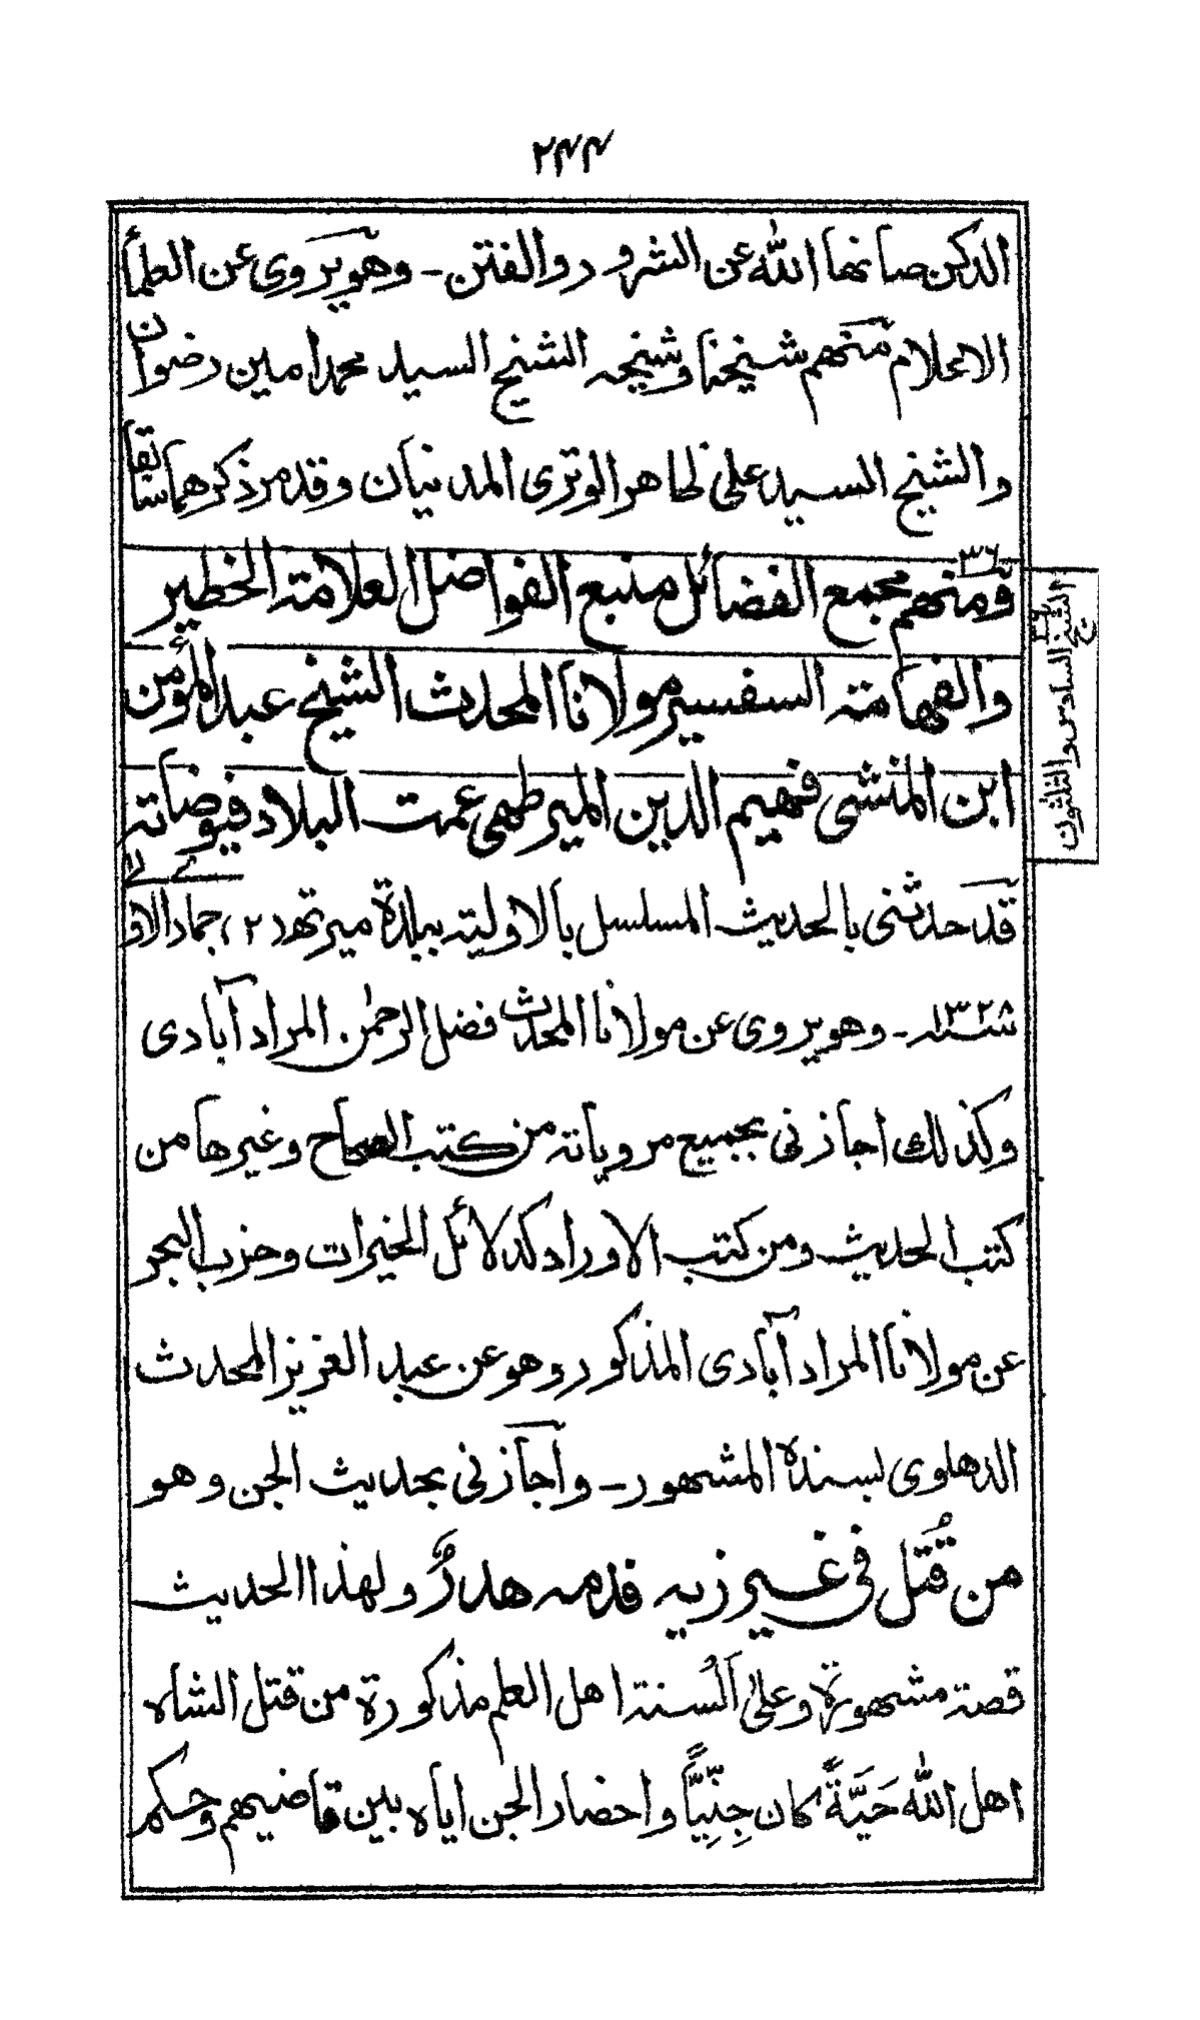 ٢٤٤
الدكن صانها الله عن الشرور والفتن ـ وهو يروى عن العلمأ
الاعلام منهم شيخنا وشيخه الشيخ السيد محمد امين رضوان
والشيخ السيد على ظاهر الوترى المدنيان وقد مر ذكرهما سابقا
٣٦
ومنهم مجمع الفضائل منبع الفواضل العلامة الخطير
والفهامة السفسير مولانا المحدث الشيخ عبد المؤمن
ابن المنشى فهيم الدين الميرطهى عمت البلاد فيوضاته
الشيخ السادس والثلثون
قد حدثنى بالحديث المسلسل بالاولية ببلدة ميرتهـ (٢) جمادالاولے
سنة ١٣٢ ـ وهو يروى عن مولانا المحدث فضل الرحمٰن المراد آبادى
وكذلك اجازنى بجميع مروياته من كتب الصحاح وغيرها من
كتب الحديث ومن كتب الاوراد كدلائل الخيرات وحزب البحر
عن مولانا المراد آبادى المذكور وهو عن عبد العزيز المحدث
الدهلوى بسنده المشهور ـ وأجازنى بحديث الجن وهو
من قُتل فى غير زيه فدمه هدرٌ ولهذا الحديث
قصة مشهورة وعلىٰ اَلْسنة اهل العلم مذكورة من قتل الشاه
اهل الله حَيَّةً كان جِنِّيًّا واحضار الجن اياه بين قاضيهم وحكم